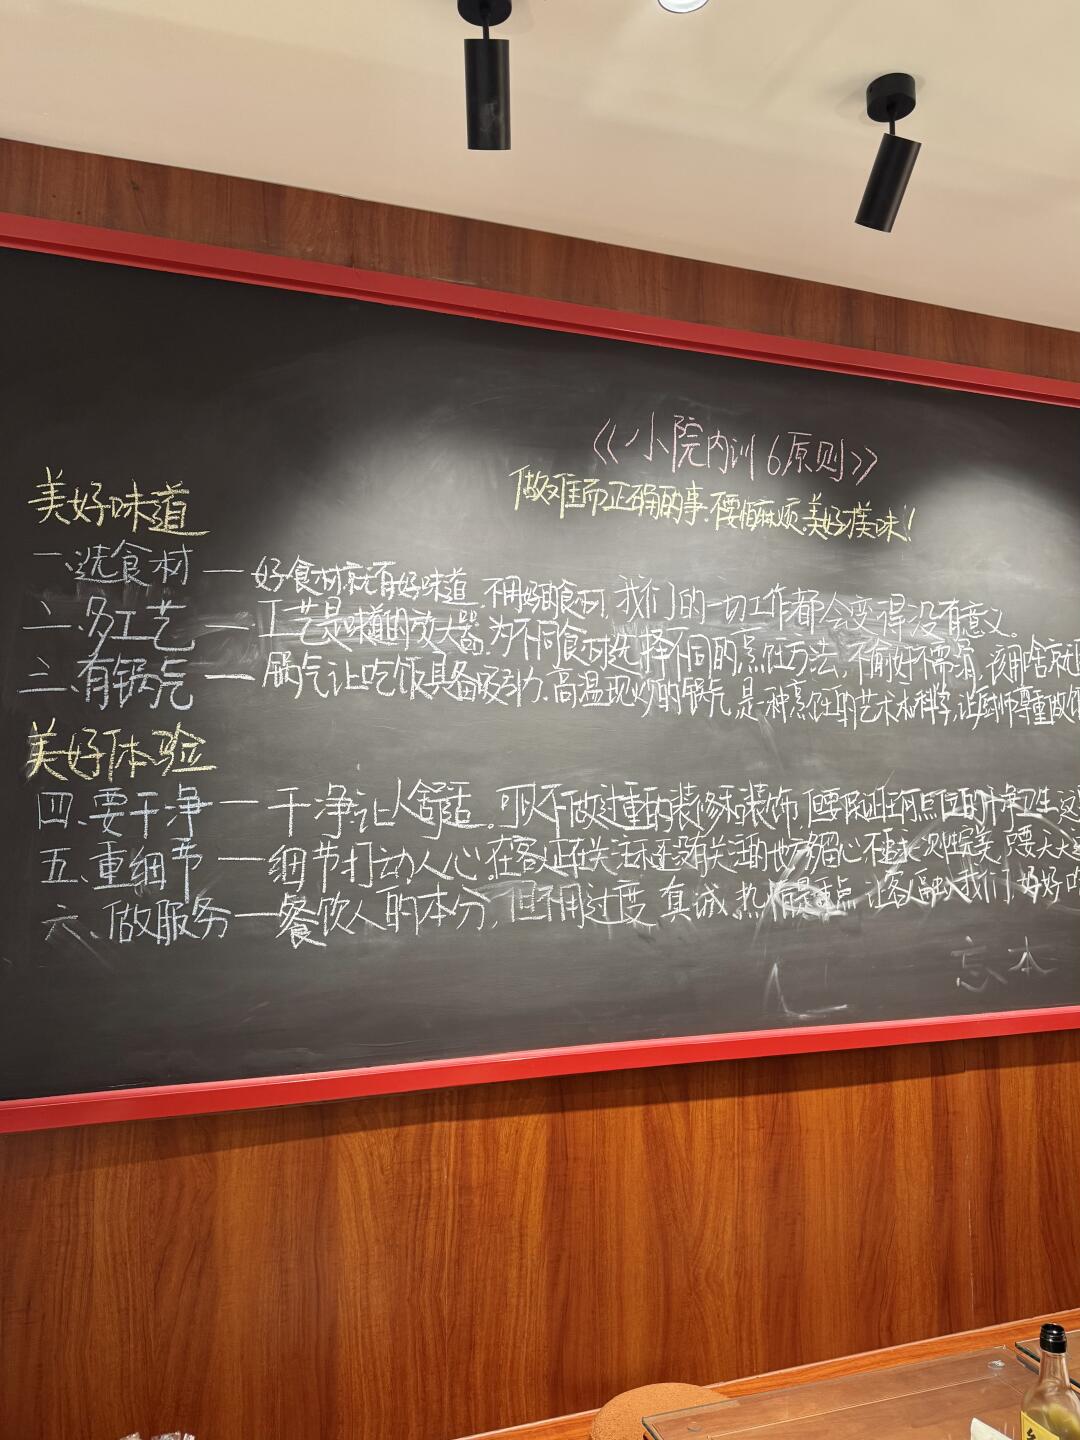 《小院内训6原则》
做难而正确的事.不要怕麻烦.美好美味!!
美好味道
一.选食材 — 好食材就有好味道.不用好的食材,我们的一切工作都会变得没有意义。
二.多工艺 — 工艺是味道的放大器.为不同食材选择不同的烹饪方法,不偷奸不需滑,该用啥就
三.有锅气 — 锅气让吃饭具备吸引力.高温现炒的锅气,是一种烹饪的艺术和科学,让厨师尊重做饭
美好体验
四.要干净 — 干净让人舒适。可以不做过重的装修和装饰,但要保证任何点位的干净卫生
五.重细节 — 细节打动人心.在客人正在关注和还没有关注的地方留心
六、做服务 — 餐饮人的本分,但不用过度,真诚、热情是重点,让客人融入我们,好好吃
忘本